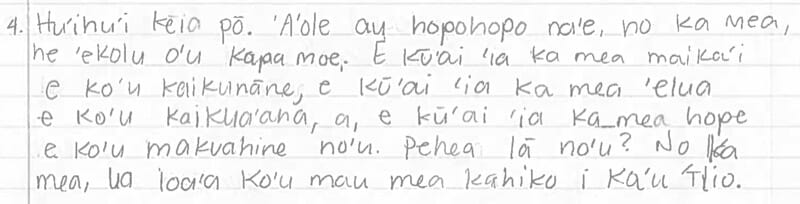 4. Hu'ihu'i kēia pō. 'A'ole au hopohopo na'e, no ka mea,
he 'ekolu o'u kapa moe. E kū'ai 'ia ka mea maika'i
e ko'u kaikunāne, e kū'ai 'ia ka mea 'elua
e ko'u kaikua'ana, a, e kū'ai 'ia ka mea hope
e ko'u makuahine no'u. Pehea lā no'u? No ka
mea, ua loa'a ko'u mau mea kahiko i ka'u 'īlio.